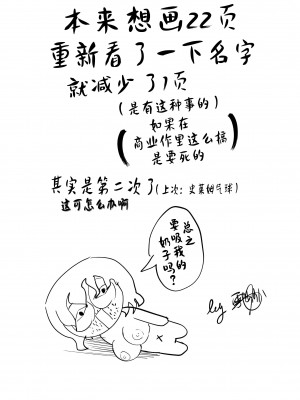 本来想画22页
重新看了一下名字
就减少了1页
(是有这种事的)
(如果在
商业作里这么搞
是要死的)
其实是第二次了(上次:史莱姆气球)
这可怎么办啊
总之
要吸我的
奶子吗?
by